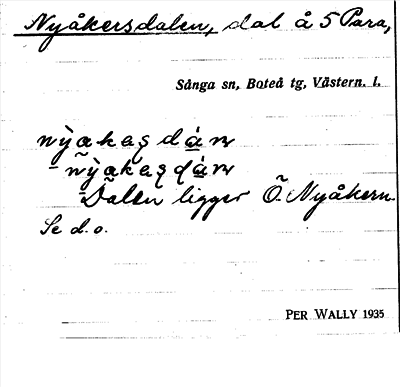 Nyåkersdalen, dal å 5 Para,
Sånga sn, Boteå tg, Västern. l.
Dalen ligger Ö. Nyåkern.
Se d. o.
PER WALLY 1935